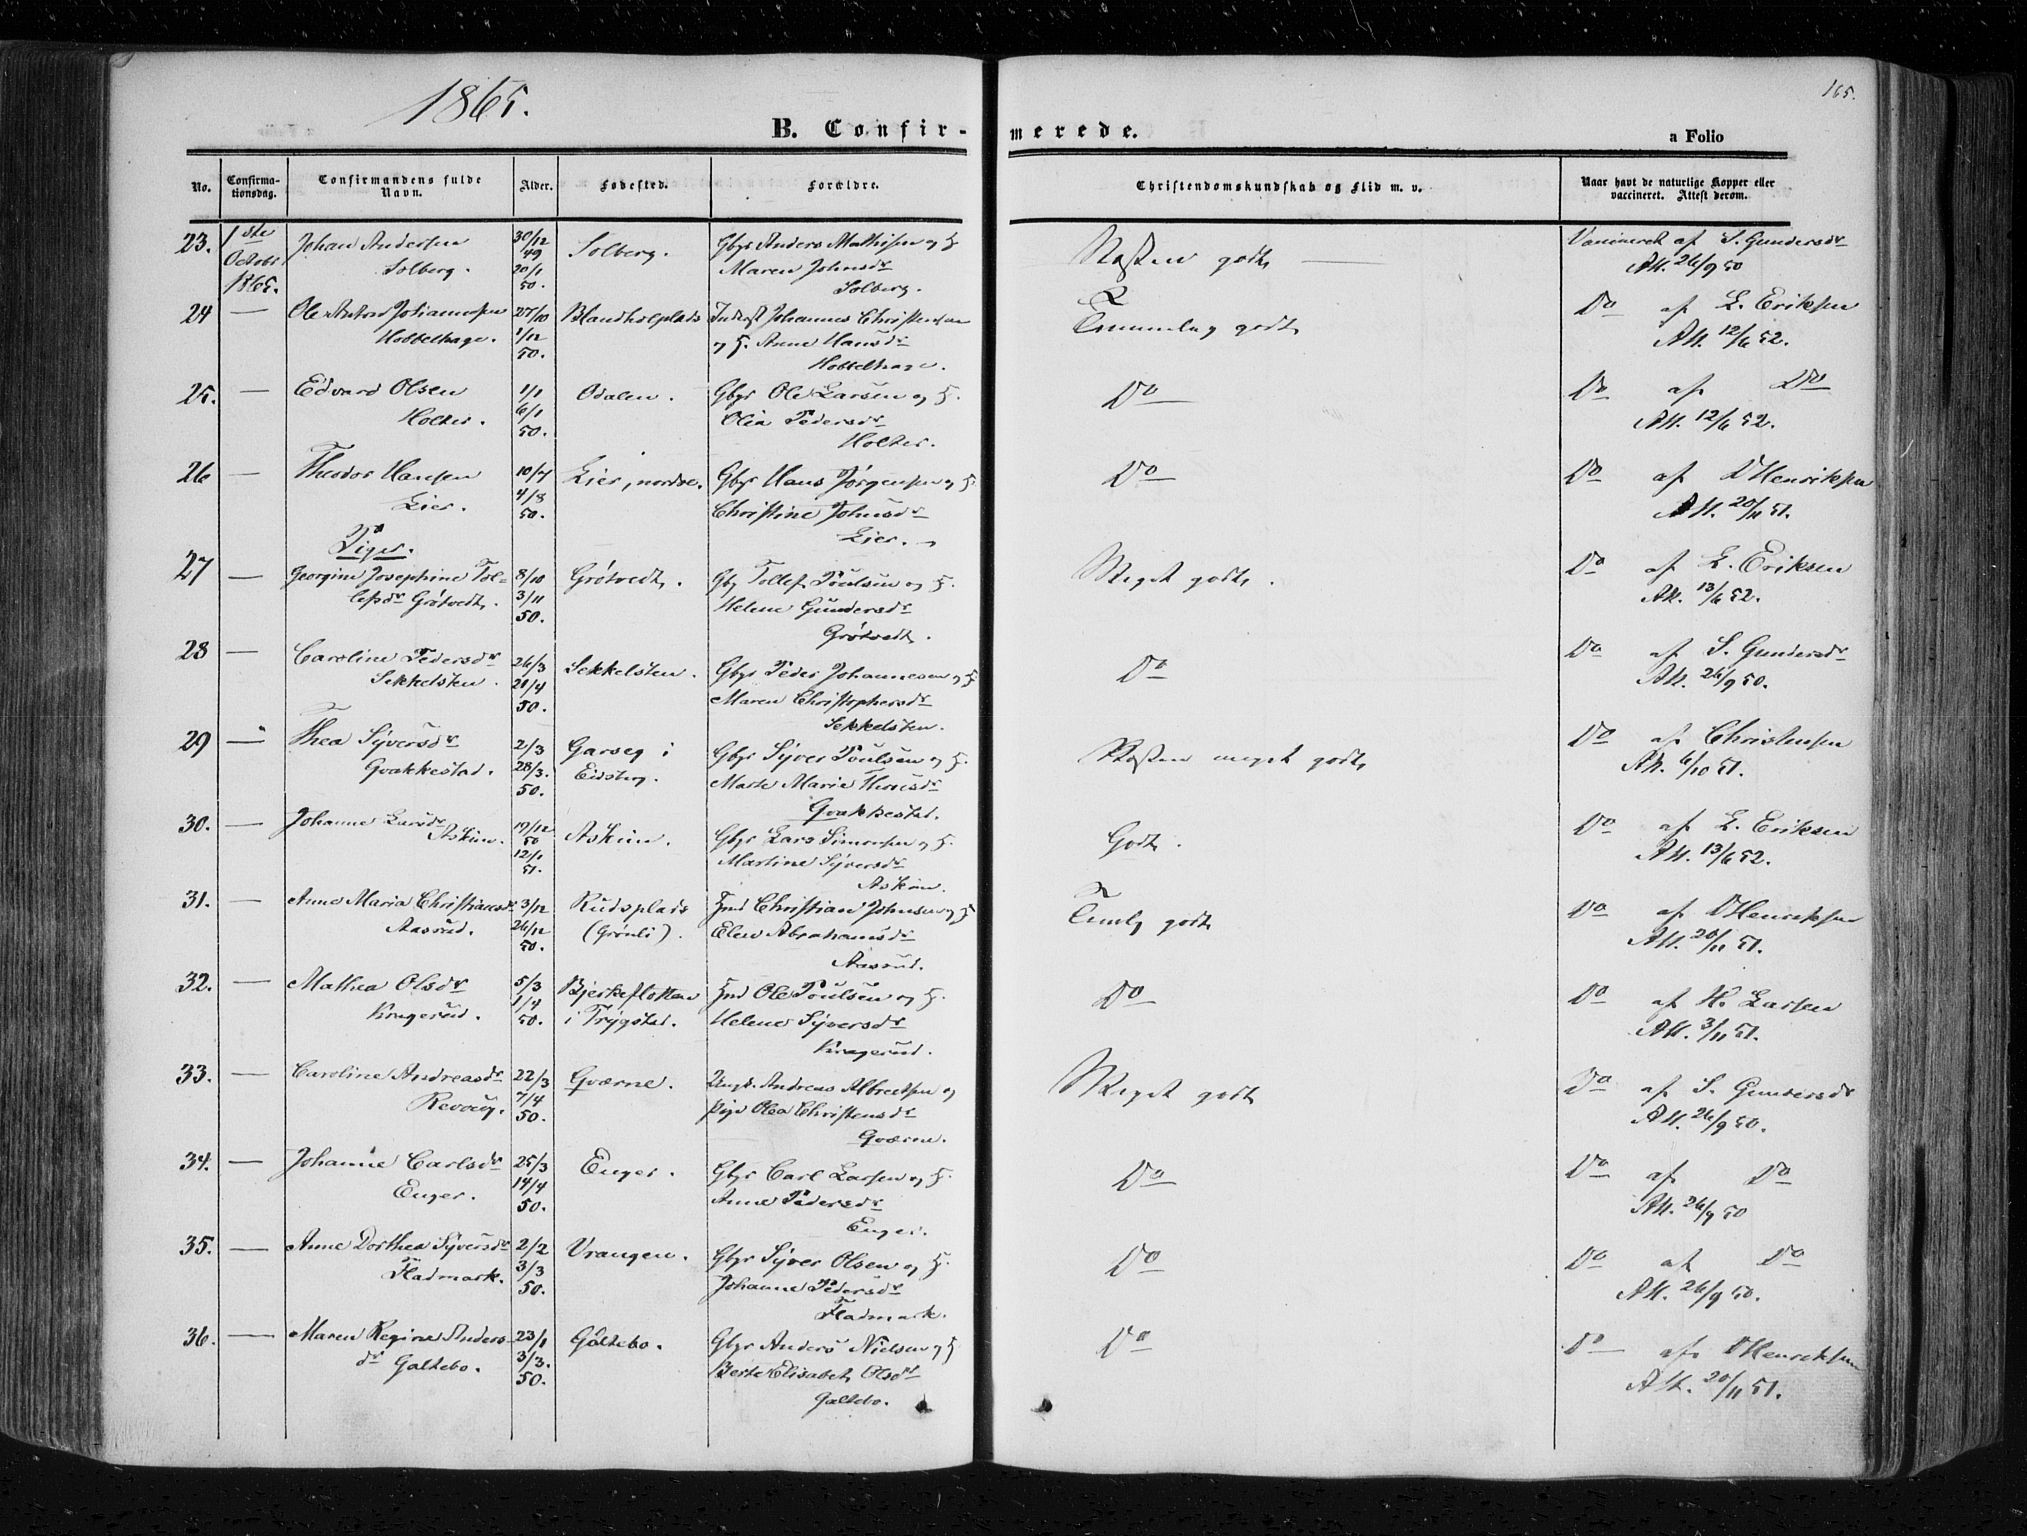 1865.
165.
B. Confir-
merede.
a Folio
No.
Confirma-
tionsdag.
Confirmandens fulde
Navn.
Alder.
Fødested.
Forældre.
Christendomskundskab og Flid m. v.
Naar havt de naturlige Kopper eller
vaccineret. Attest derom.
23. 1ste Johan Andersen 30/12 Solberg. Gbgr Anders Mathisen og H Næsten godt Vaccineret af S. Gundersdr
Octobr Solberg. 49 Maren Johnsdr Att. 26/9 50
1865. 20/1 Solberg.
50.
24 — Ole Johannesen 27/10 Inderst Johannes Christensen Temmelig godt Do af L. Eriksen
Hobbelhage. 1/12 og H. Anne Hansdr Att. 12/6 52.
50. Hobbelhage.
25. — Edvard Olsen 1/1 Odalen. Gbgr Ole Larsen og H. Do Do af Do
Holter. 6/1 Olia Pedersdr Att. 12/6 52.
50. Holter.
26 — Theodor Hansen 10/7 Lier, nordre. Gbgr Hans Jørgensen og H. Do Do af Henriksen
Lier. 4/8 Christine Johnsdr Att. 20/11 51.
50. Lier.
Piger.
27 — Georgine Josephine Tol- 8/10 Grøtvedt. Gbr Tollef Poulsen og H. Meget godt. Do af L. Eriksen
lefsdr Grøtvedt. 3/11 Helene Gundersdr Att. 13/6 52.
50. Grøtvedt.
28 — Caroline Pedersdr 26/3 Sekkelsten. Gbgr Peder Johannesen og H Do Do af S. Gundersdr
Sekkelsten. 21/4 Maren Christophersdr Att. 26/9 50.
50. Sekkelsten.
29 — Thea Syversdr 2/3 Garseg i Gbgr Syver Poulsen og H. Næsten meget godt Do af Christensen
Gvakkestad. 28/3. Eidsberg. Marte Marie Att. 6/10 51.
50. Gvakkestad.
30. — Johanne Larsdr 19/12 Askim. Gbgr Lars Simensen og H. Godt. Do af L. Eriksen
Askim. 50 Martine Syversdr Att. 13/6 52.
12/1 Askim.
51.
31. — Anne Maria Christiansdr 3/12 Rudsplads Ind Christian Johnsen og H Temlg godt Do af Henriksen
Aasrud. 26/12 (Grønli). Elen Abrahamsdr Att. 20/11 51.
50. Aasrud.
32. — Mathea Olsdr 5/3 Bjerkeflotten Ind Ole Poulsen og H. Do Do af H. Larsen
Kragerud. 1/4 i Trygstad. Helene Syversdr Att. 3/11 51.
50. Kragerud.
33. — Caroline Andreasdr 22/3 Gværne. Ungk. Andreas Albretsen og Meget godt Do af S. Gundersdr
Revoug. 7/4 Pige Olea Christensdr Att. 26/9 50.
50. Gværne.
34. — Johanne Carlsdr 25/3 Enger. Gbgr Carl Larsen og H. Do Do af Do
Enger. 14/4 Anne Pedersdr Att. 26/9 50
50. Enger.
35. — Anne Dorthea Syversdr 2/2 Vrangen. Gbgr Syver Olsen og H. Do Do af Do
Fladmark. 3/3 Johanne Pedersdr Att. 26/9 50.
50. Fladmark.
36. — Maren Regine Anders- 23/1 Galtebo. Gbgr Anders Nielsen og H Do Do af Henriksen
dr Galtebo. 3/3. Berte Elisabet Olsdr Att. 20/11 51.
50. Galtebo.